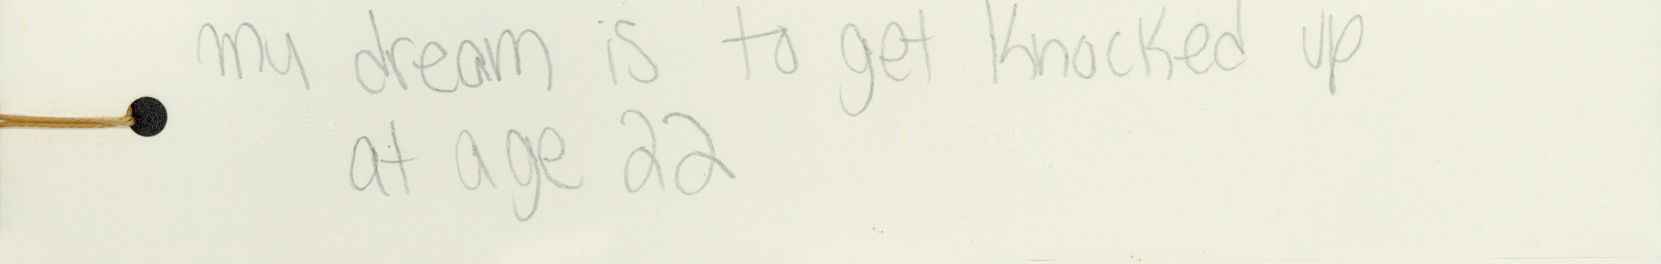 my dream is to get knocked up
at age 22